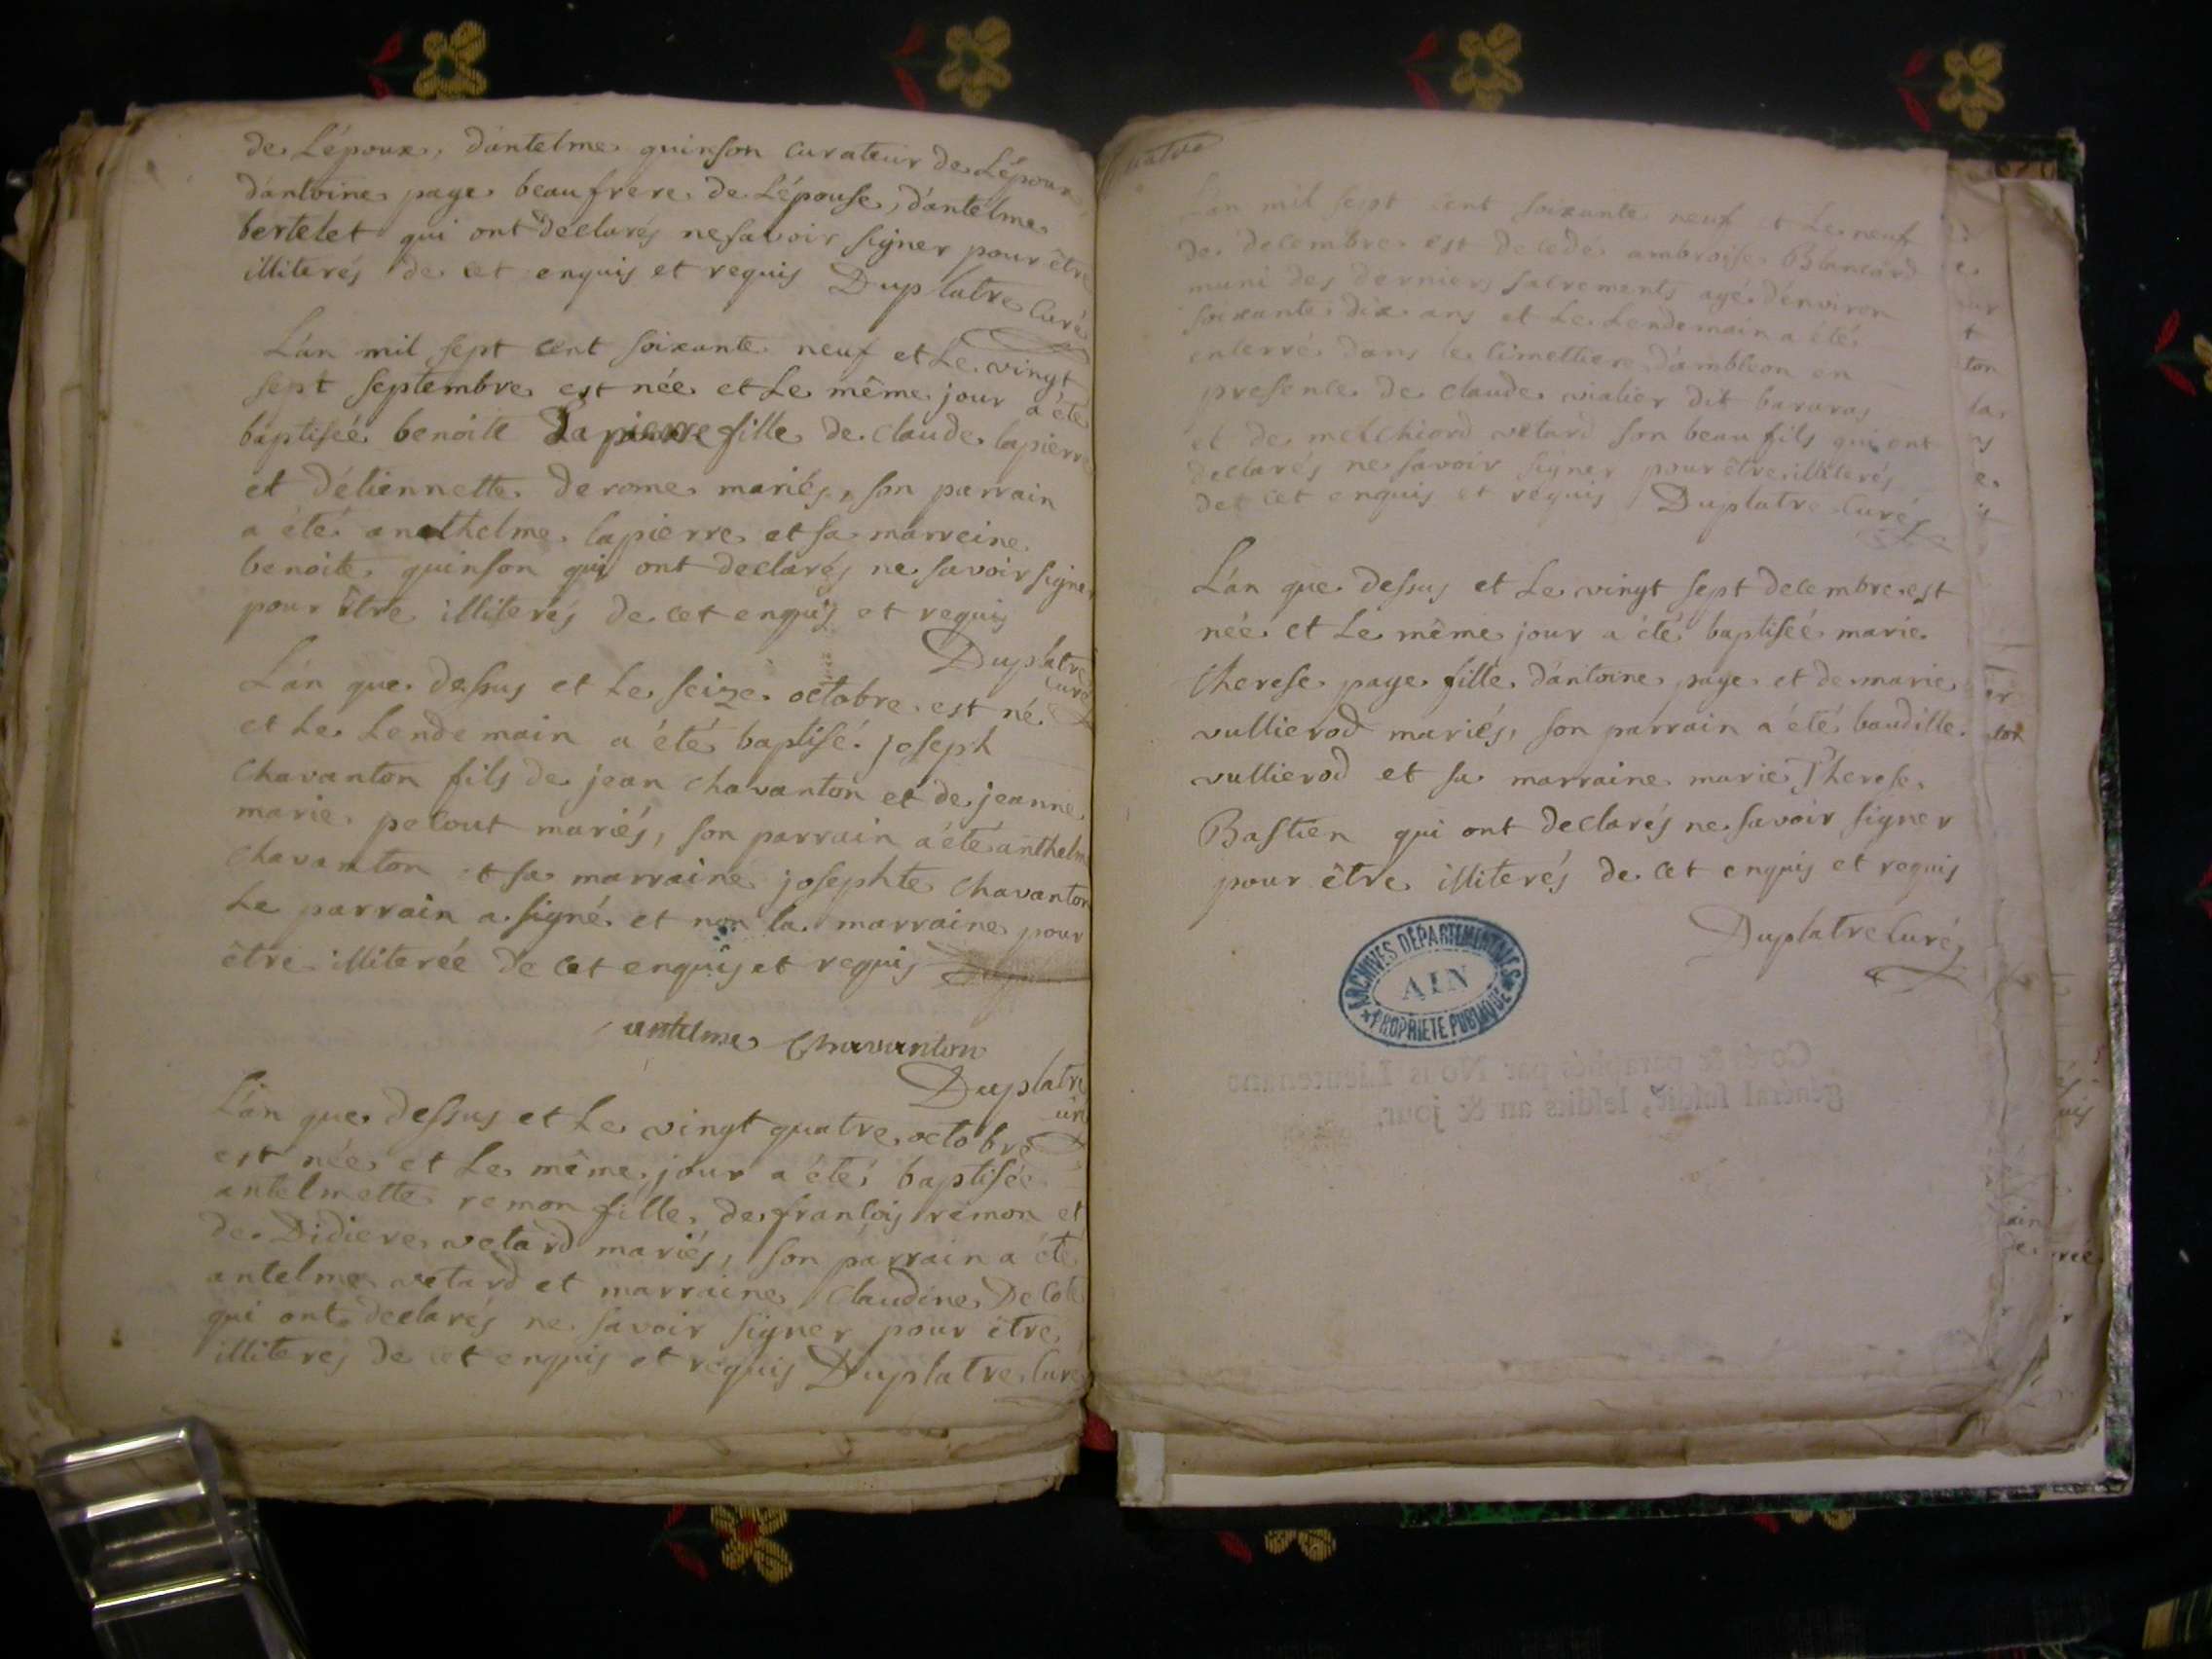 de Lépoux, dantelme quinson curateur de Lépoux,
dantoine page beaufrere de Lépouse, dantelme
bertelet qui ont declarés ne savoir signer pour être
illiterés de cet enquis et requis Duplatre Curé
Lan mil sept cent soixante neuf et Le vingt
sept septembre est née et Le même jour a été
baptiseé benoite Lapierre fille de claude lapierre
et détiennette derome mariés, son parrain
a été anthelme lapierre et sa marreine
benoite quinson qui ont declarés ne savoir signer
pour être illiterés de cet enquis et requis
Duplatre
curé
Lan que dessus et Le seize octobre est né
et Le Lendemain a été baptisé joseph
Chavanton fils de jean Chavanton et de jeanne
marie petout mariés, son parrain a été anthelme
Chavanton et sa marraine josephte Chavanton
Le parrain a signé et non la marraine pour
être illiterée de cet enquis et requis
antelme Chavanton
Duplatre
curé
Lan que dessus et Le vingt quatre octobre
est née et Le même jour a été baptisée
antelmette remon fille de françois remon et
de Didiere vetard mariés, son parrain a été
antelme vetard et marraine Claudine De Cote
qui ont declarés ne savoir signer pour être
illiterés de cet enquis et requis Duplatre Curé
Lan mil sept cent soixante neuf et Le neuf
de decembre est decedé ambroise Blancard
muni des derniers sacrements agé denviron
soixante dix ans et Le Lendemain a été
enterré dans le cimettiere dambleon en
presence de claude vialier dit bararas
et de melchiord vetard son beau fils qui ont
declarés ne savoir signer pour être illiterés
de cet enquis et requis Duplatre Curé
Lan que dessus et Le vingt sept decembre est
née et Le même jour a été baptiseé marie
therese page fille dantoine page et de marie
vullierod mariés, son parrain a été baudille
vullierod et sa marraine marie Therese
Bastien qui ont declarés ne savoir signer
pour être illiterés de cet enquis et requis
Duplatre Curé
ARCHIVES DÉPARTEMENTALES
AIN
PROPRIÉTÉ PUBLIQUE